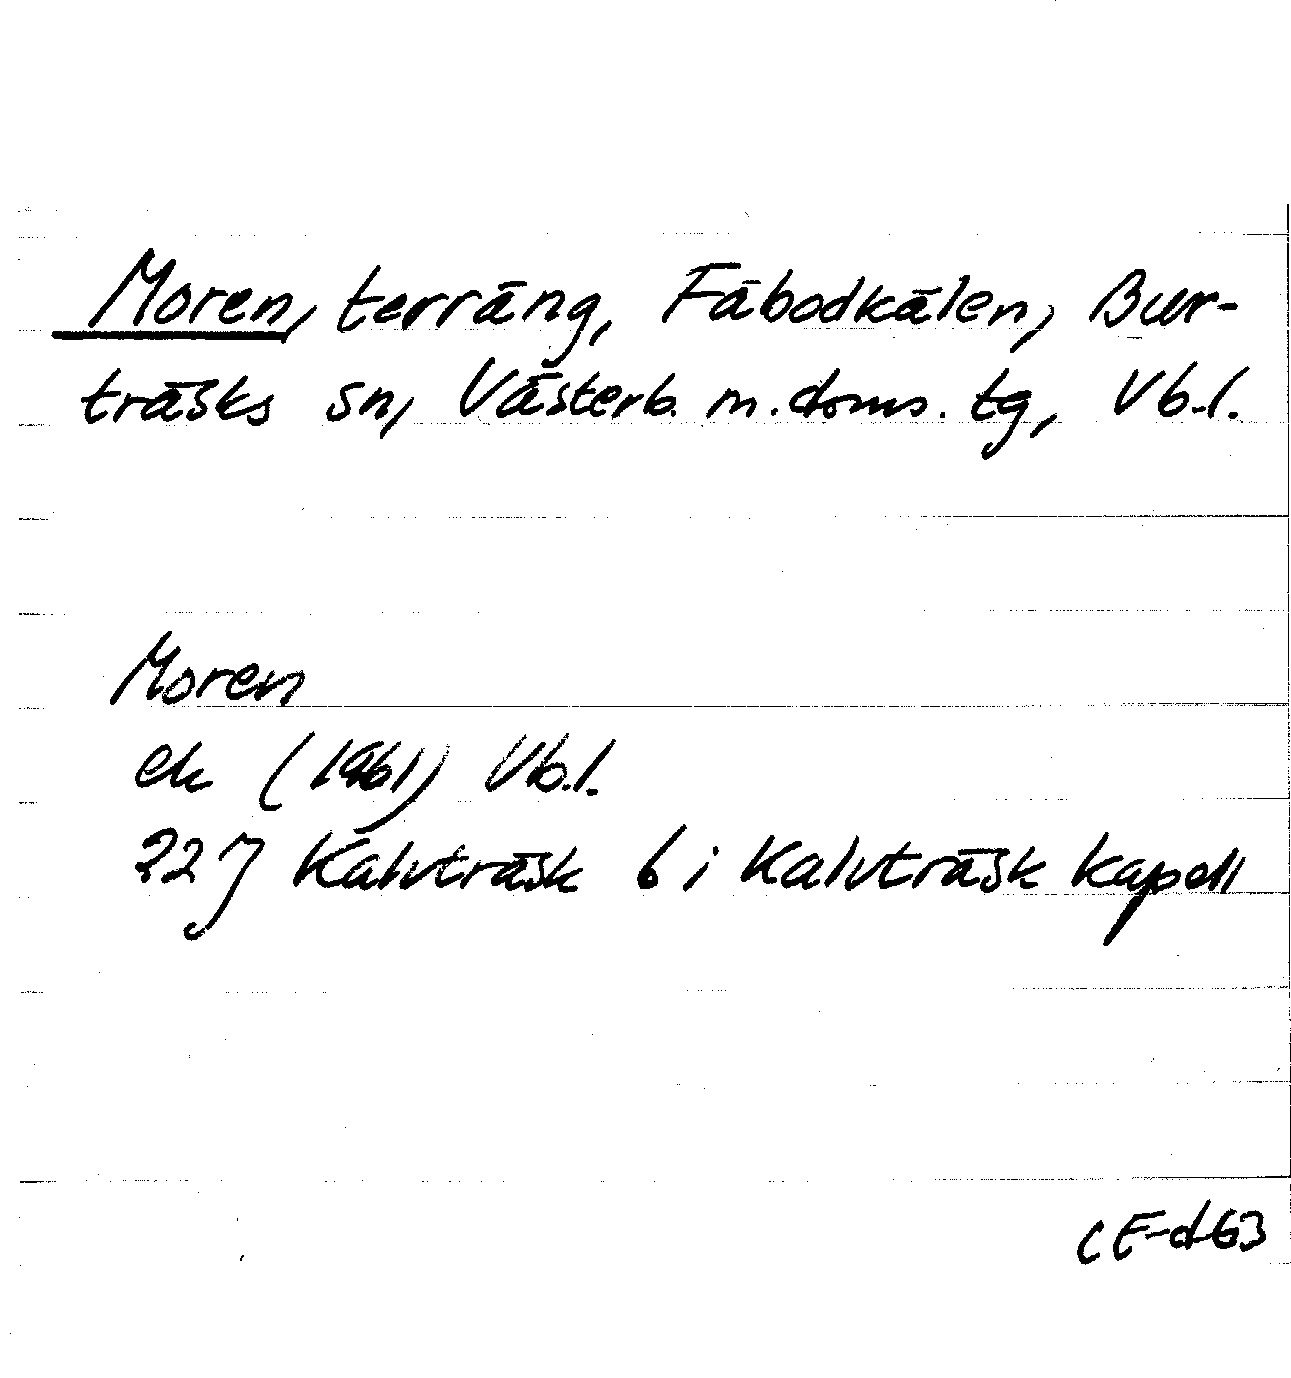 Moren, terräng, Fäbodkälen, Bur-
träsks sn, Västerb. m. doms. tg, Vb. l.
Moren
ek (1961) Vb. l.
22J Kalvträsk 6 i Kalvträsk kapell
CE-d 63